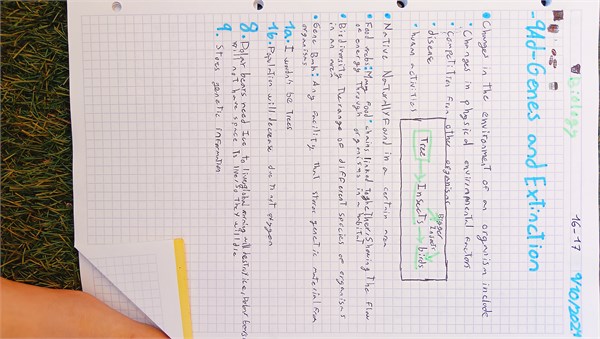 Biology
16-17
9/10/2024
-9Ad-Genes and Extinction
• Changes in the environment of an organism include
• Changes in physical environmental factors
• Competition from other organisms
• disease
• human activities
Tree → Insects → birds
Bigger
Insects
• Native Naturally found in a certain area
• Food webs: Many food chains linked together, Showing the flow
of energy through organisms in a habitat
• Biodiversity The range of different species or organisms
in an area
• Gene Bank: Any facility that stores genetic material from
organisms
1a. I would be trees
1b. Population will decrease due to not oxygen
8. Polar bears need Ice to live, global arming will destroy ice, Polar bears
will not have space to live so they will die
9. Stores genetic information